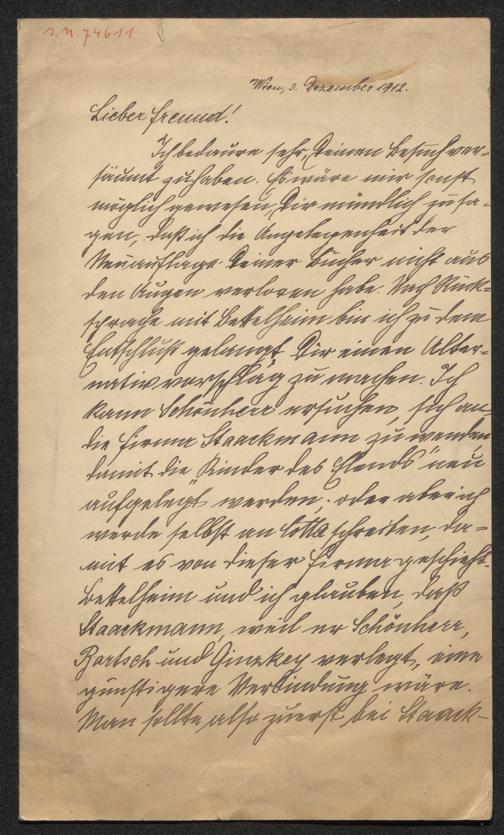 I.N. 74611
Wien, 3. Dezember 1912.
Lieber Freund!
Ich bedaure sehr, Deinen Besuch ver-
säumt zu haben. Es wäre mir sonst
möglich gewesen, Dir mündlich zu sa-
gen, daß ich die Angelegenheit der
Neuauflage Deiner Bücher nicht aus
den Augen verloren habe. Nach Rück-
sprache mit Bettelheim bin ich zu dem
Entschluß gelangt, Dir einen Alter-
nativvorschlag zu machen. Ich
kann Schönherr ersuchen, sich an
die Firma Staackmann zu wenden
damit die „Kinder des Elends" neu
aufgelegt werden; oder aber ich
werde selbst an Cotta schreiben, da-
mit es von dieser Firma geschieht.
Bettelheim und ich glauben, daß
Staackmann, weil er Schönherr,
Bartsch und Ginzkey verlegt, eine
günstigere Verbindung wäre.
Man sollte also zuerst bei Staack-